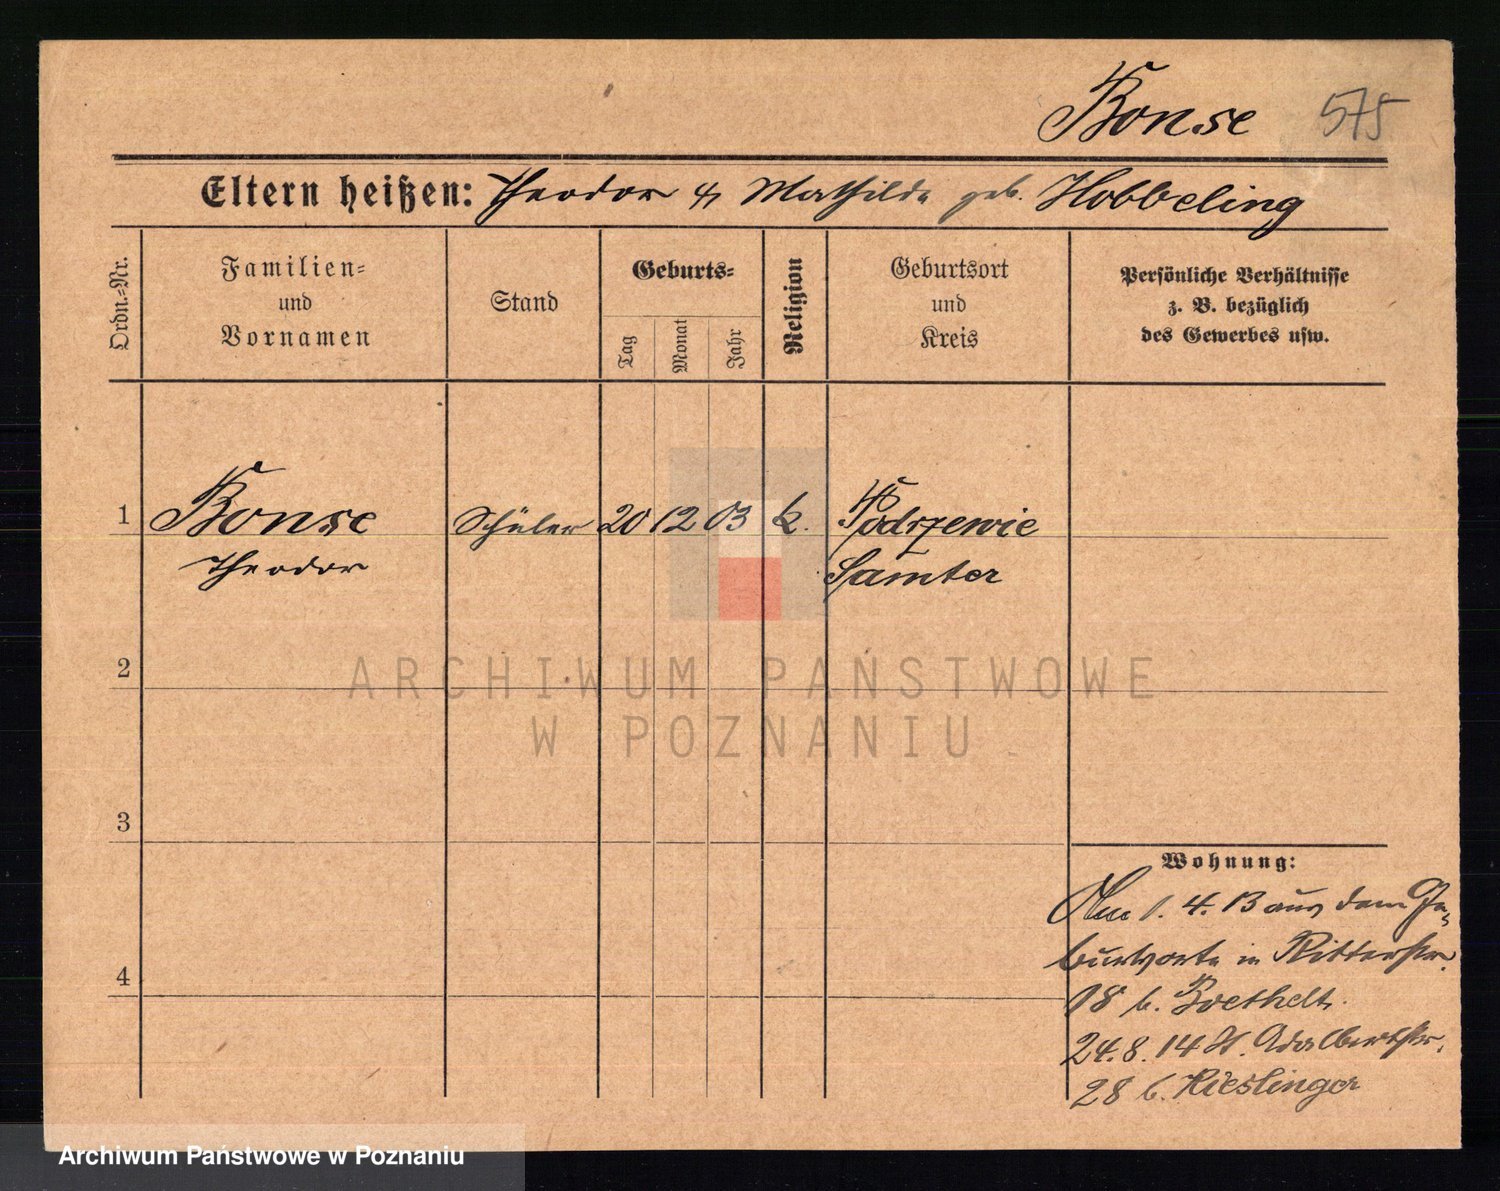 Bonse 575
Eltern heißen: Theodor & Mathilde geb. Hobbeling
Ordn.-Nr.
Familien-
und
Vornamen
Stand
Geburts-
Tag
Monat
Jahr
Religion
Geburtsort
und
Kreis
Persönliche Verhältnisse
z. B. bezüglich
des Gewerbes usw.
1 Bonse Schüler 20 12 03 k. Podrzewie
Theodor Samter
2
ARCHIWUM PAŃSTWOWE
W POZNANIU
3
Wohnung:
Am 1. 4. 13 aus dem Ge-
burtsorte in Ritterstr.
18 b. Boethelt.
4
24. 8. 14 H. Adalbertstr.
28 b. Kieslinger
Archiwum Państwowe w Poznaniu